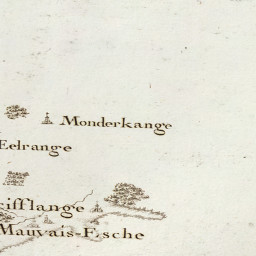 Monderkange
Eelrange
ifflange
Mauvais-Esche